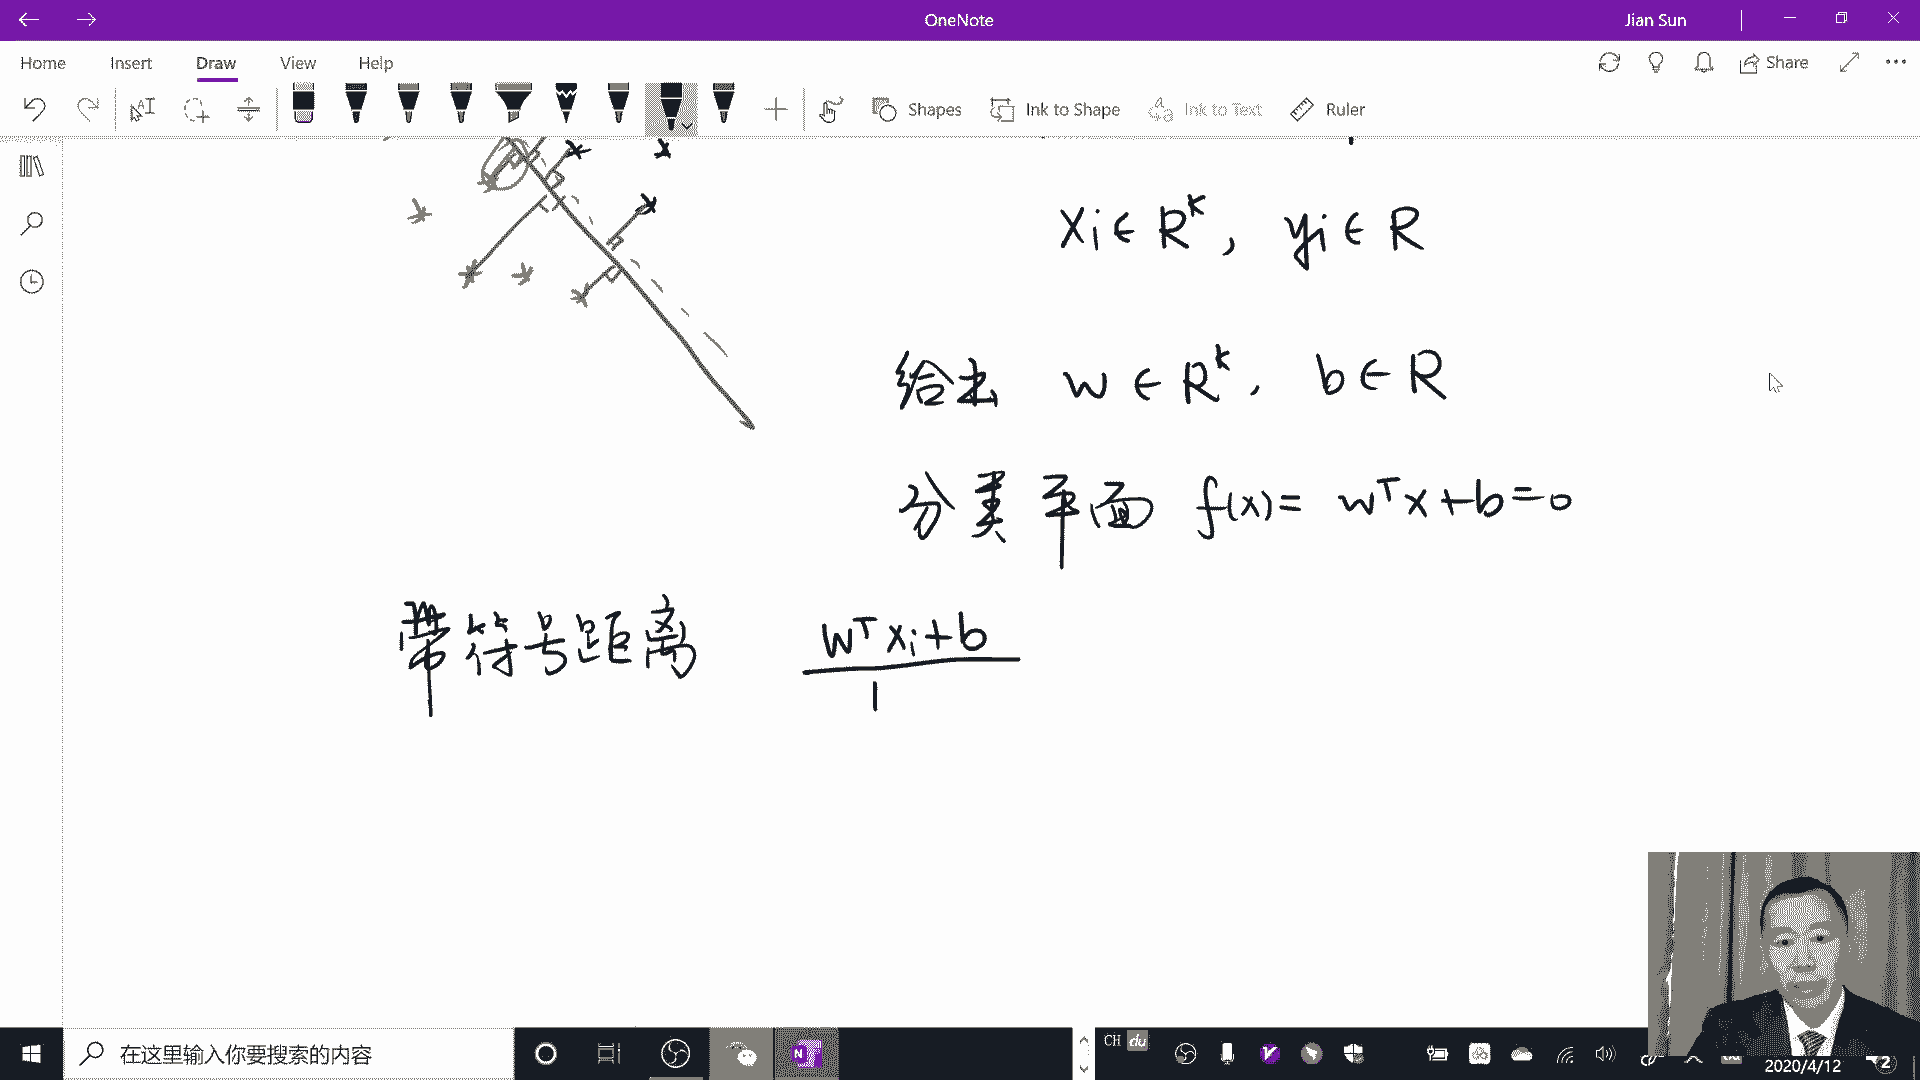 OneNote
Jian Sun
Home Insert Draw View Help
Share
Shapes Ink to Shape Ink to Text Ruler
xi ∈ R^k, yi ∈ R
给出 w ∈ R^k, b ∈ R
分类平面 f(x) = w^T x + b = 0
带符号距离 w^T xi + b
在这里输入你要搜索的内容
CH du
2020/4/12
2